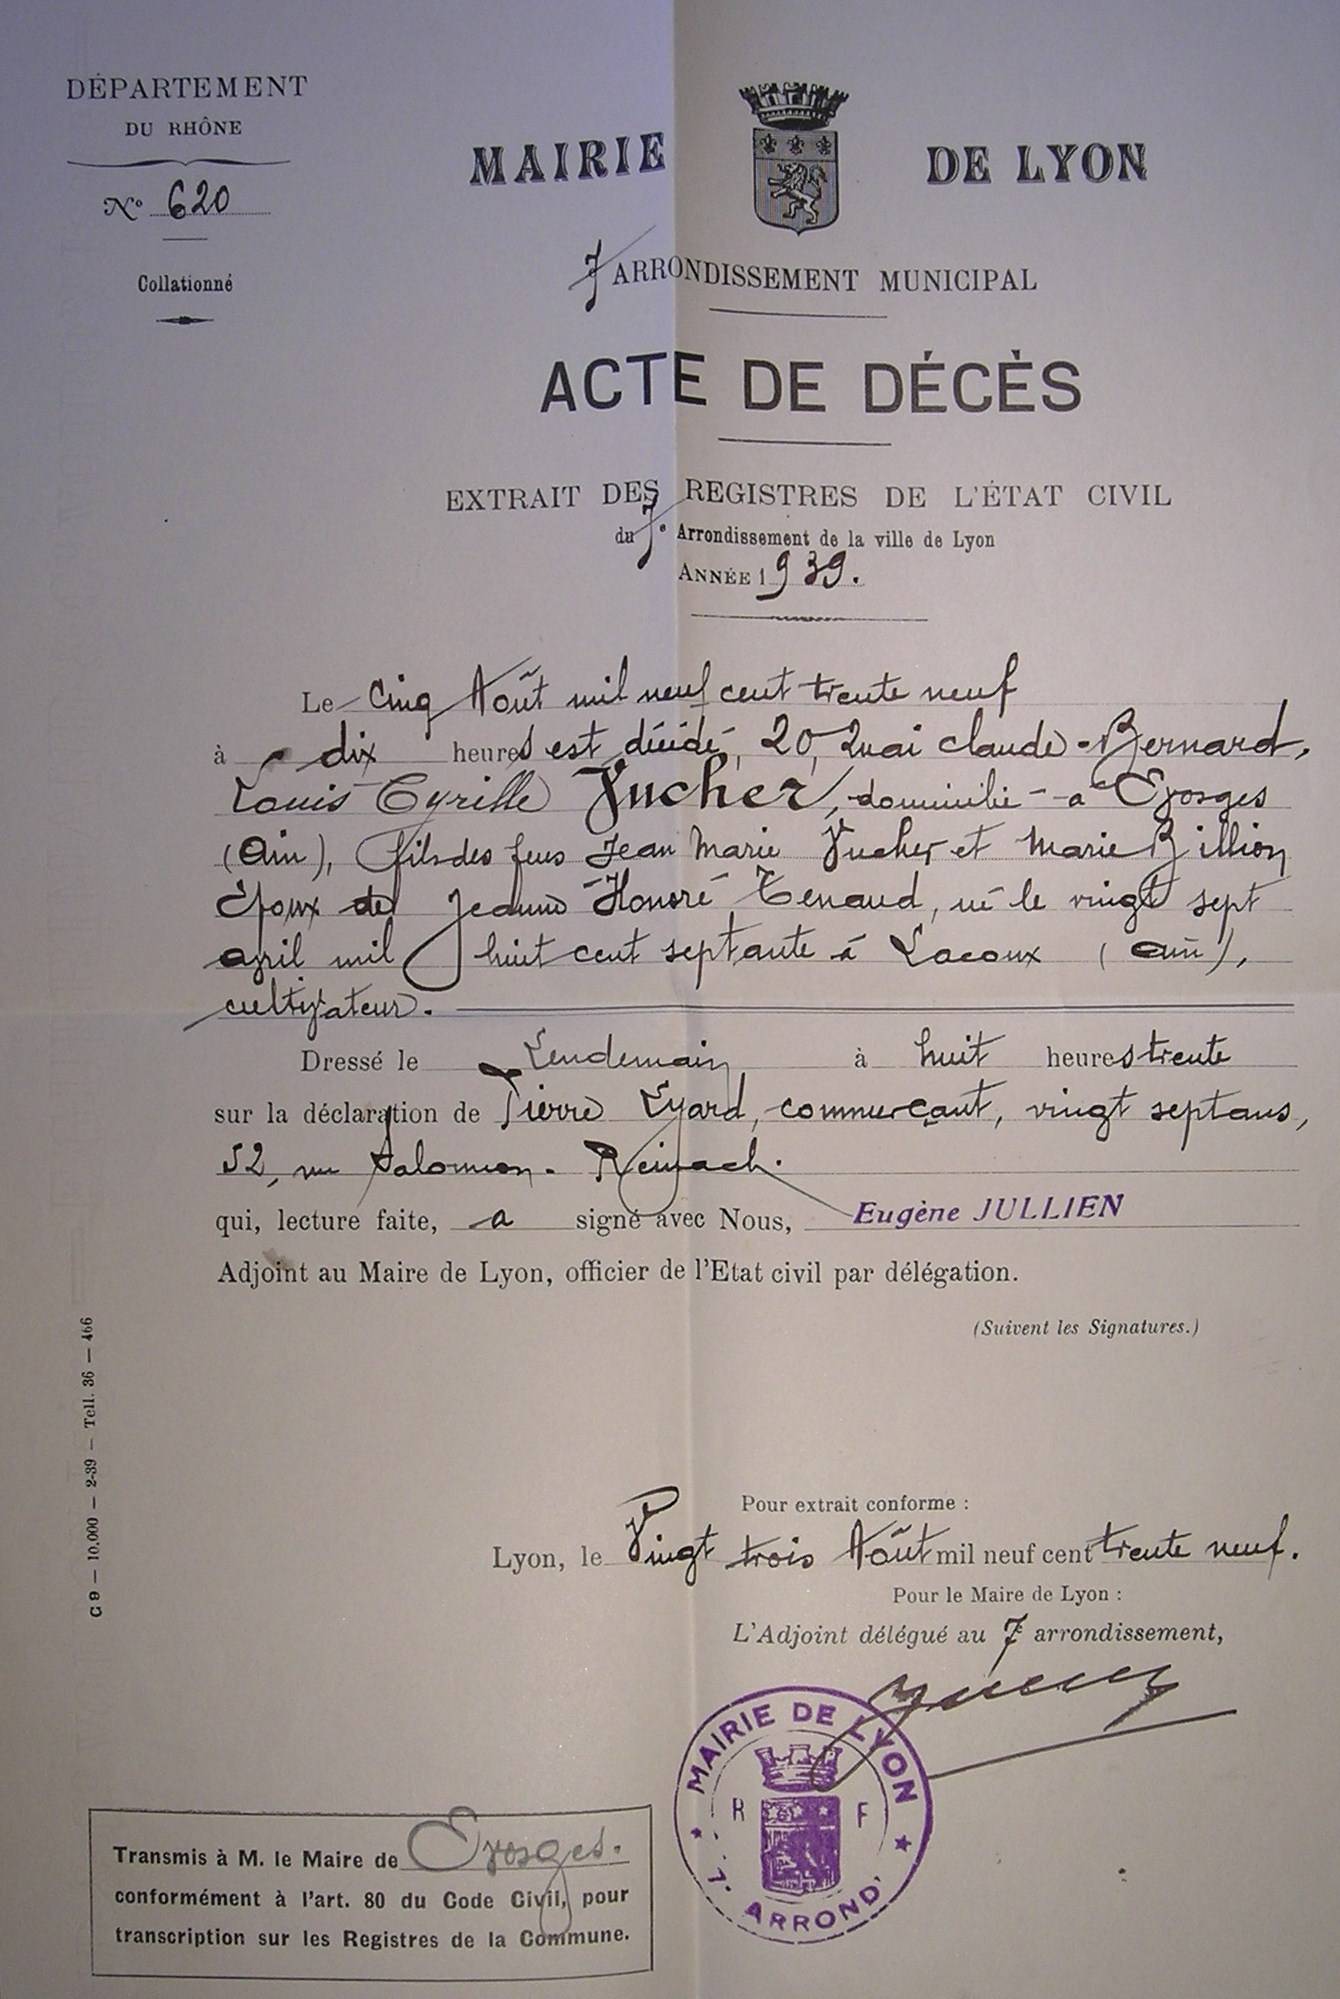 DÉPARTEMENT
DU RHÔNE
Nº 620
Collationné
MAIRIE DE LYON
7 ARRONDISSEMENT MUNICIPAL
ACTE DE DÉCÈS
EXTRAIT DES REGISTRES DE L'ÉTAT CIVIL
du 7e Arrondissement de la ville de Lyon
ANNÉE 1939.
Le Cinq Août mil neuf cent trente neuf
à dix heures est décédé, 20, Quai Claude-Bernard,
Louis Cyrille Vucher, domicilié à Evosges
(Ain), fils des feus Jean Marie Vucher et Marie Billion
Epoux de Jeanne Honoré Tenaud, né le vingt sept
avril mil huit cent septante à Lacoux (Ain),
cultivateur.
Dressé le Lendemain à huit heures trente
sur la déclaration de Pierre Lyard, commerçant, vingt sept ans,
52, rue Salomon-Reinach.
qui, lecture faite, a signé avec Nous, Eugène JULLIEN
Adjoint au Maire de Lyon, officier de l'Etat civil par délégation.
(Suivent les Signatures.)
C 9 — 10.000 — 2-39 — Tell. 36 — 466
Pour extrait conforme :
Lyon, le Vingt trois Août mil neuf cent trente neuf.
Pour le Maire de Lyon :
L'Adjoint délégué au 7e arrondissement,
MAIRIE DE LYON
R F
7e ARRONDt
Transmis à M. le Maire de Evosges.
conformément à l'art. 80 du Code Civil, pour
transcription sur les Registres de la Commune.